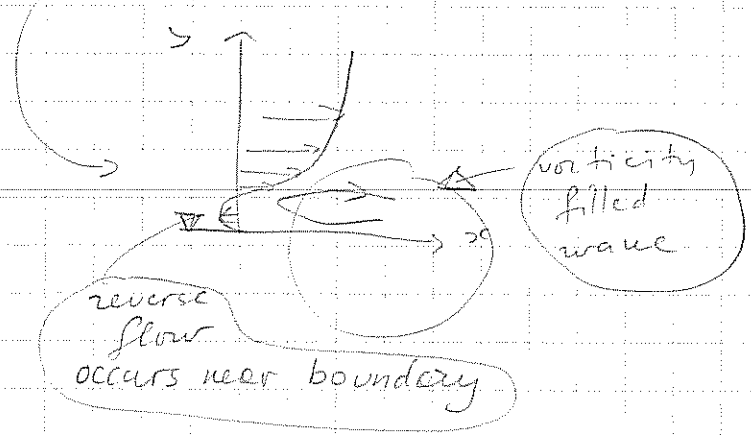 y
vorticity
filled
wake
x
reverse
flow
occurs near boundary